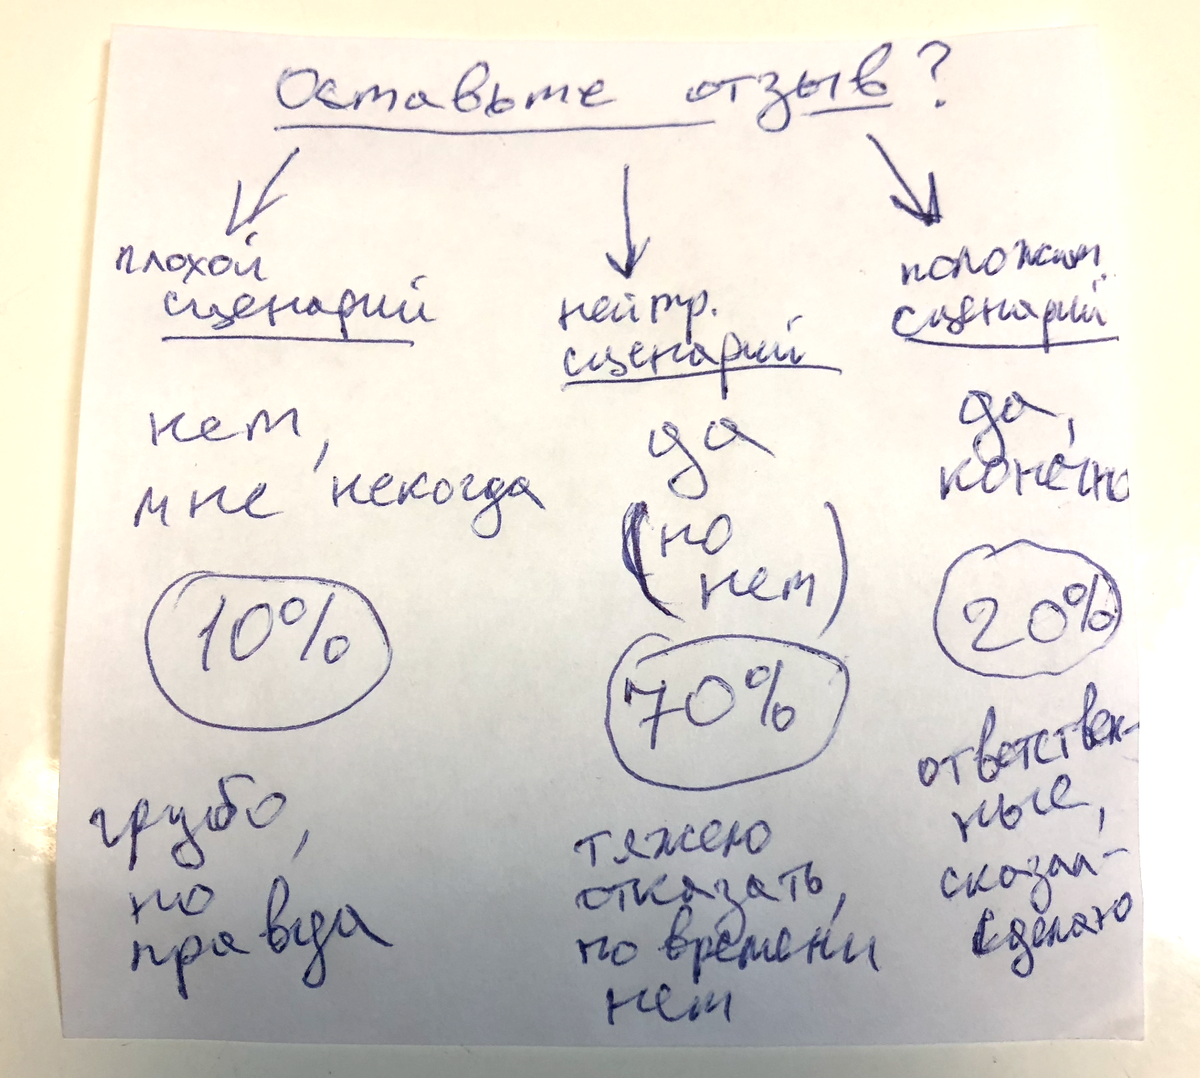 Оставьте отзыв?
плохой
сценарий
нет,
мне некогда
10%
грубо,
но
правда
нейтр.
сценарий
да
(но
нет)
70%
тяжело
отказать,
но времени
нет
положит.
сценарий
да,
конечно
20%
ответствен-
ные,
сказал-
сделаю